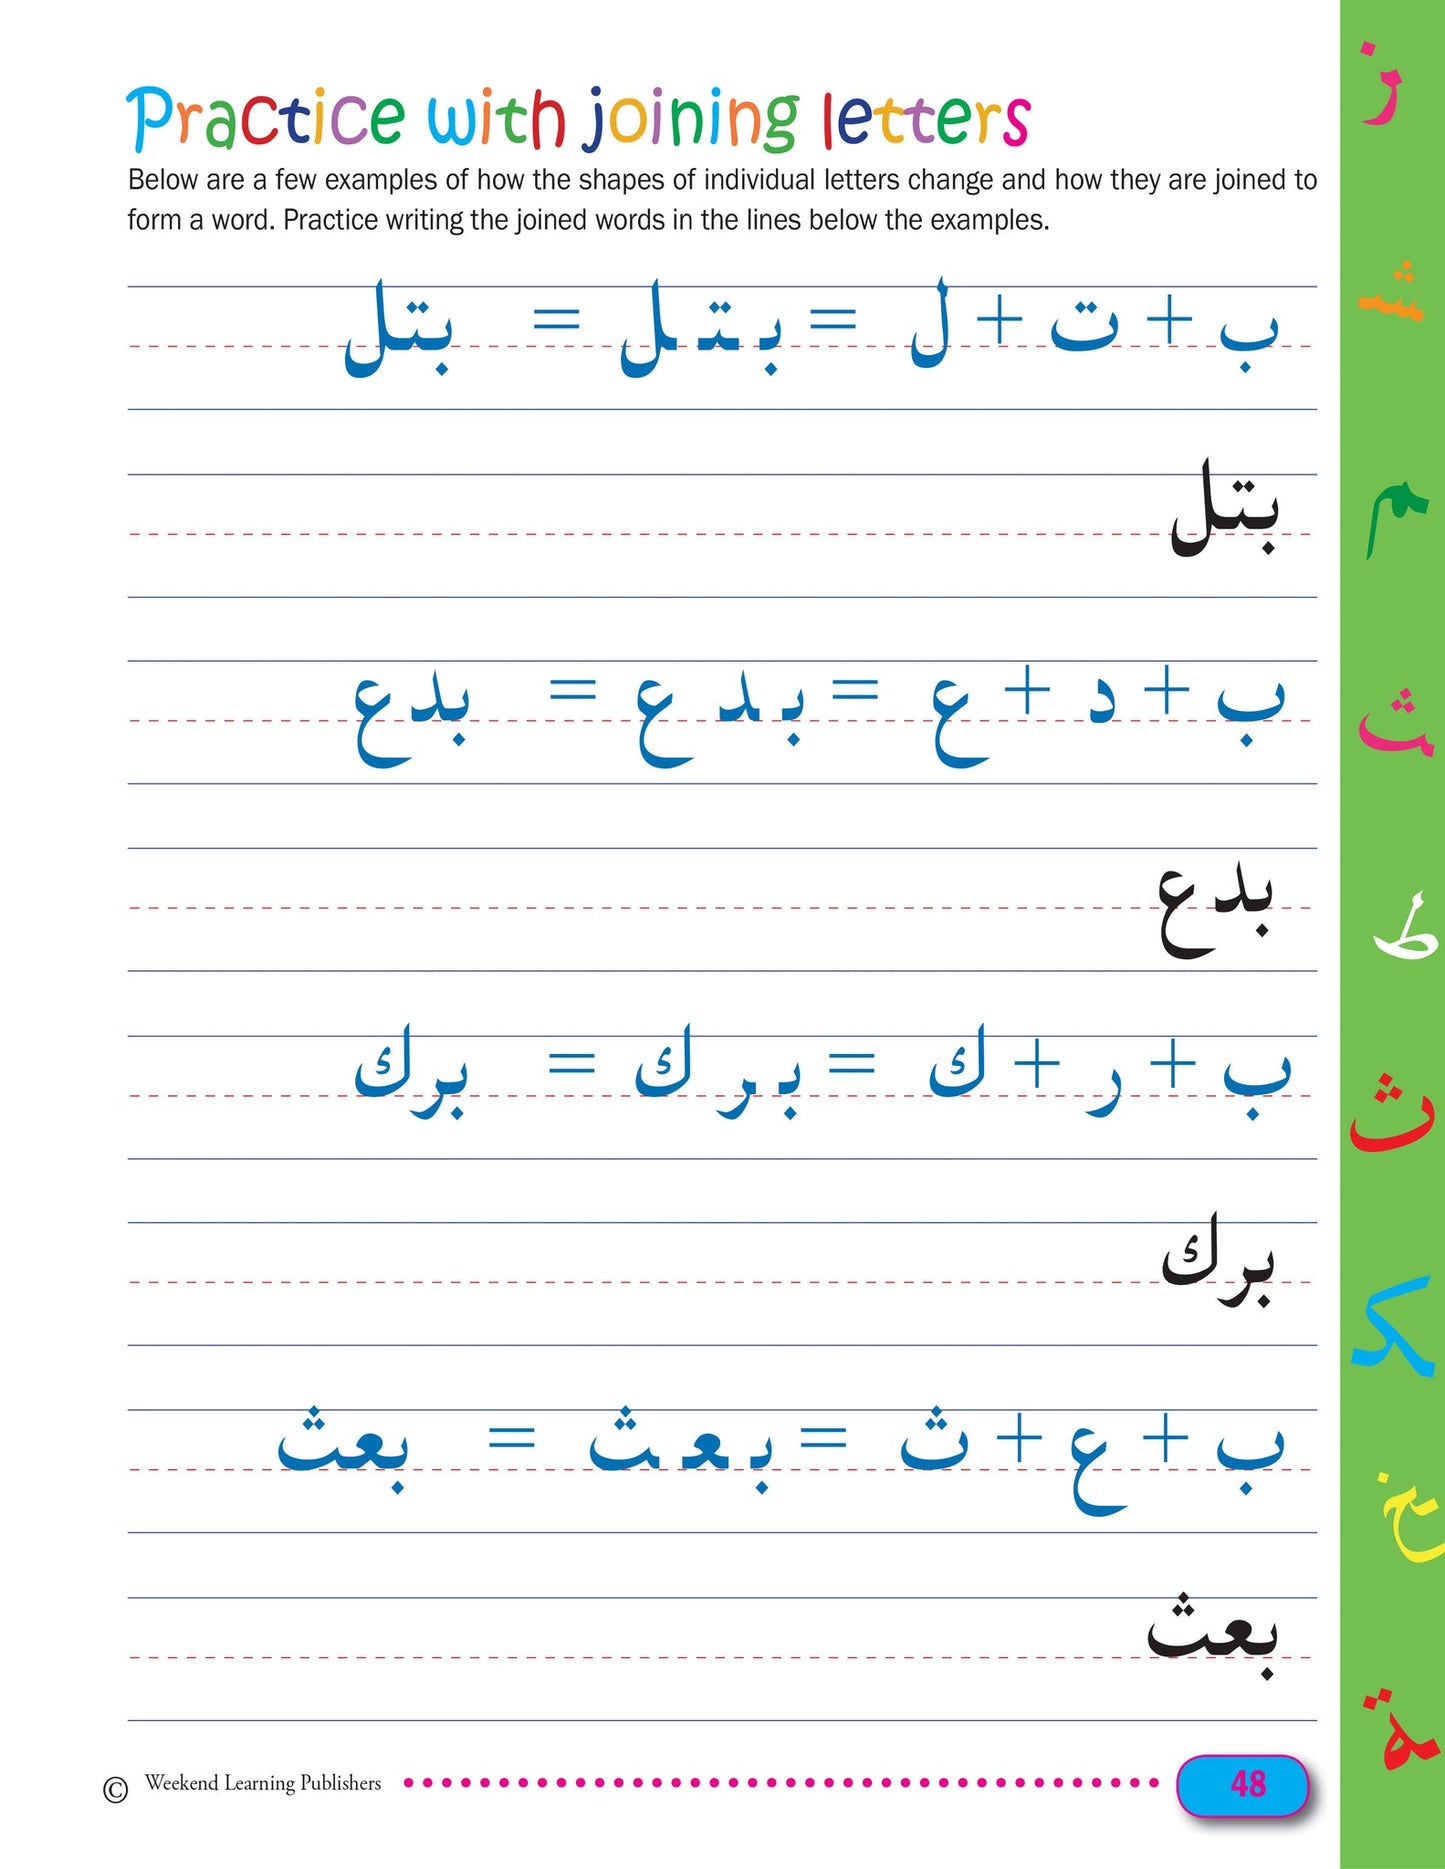 Practice with joining letters
Below are a few examples of how the shapes of individual letters change and how they are joined to
form a word. Practice writing the joined words in the lines below the examples.
ب + ت + ل = بـ ـتـ ـل = بتل
بتل
ب + د + ع = بـ ـد ع = بدع
بدع
ب + ر + ك = بـ ـر ك = برك
برك
ب + ع + ث = بـ ـعـ ـث = بعث
بعث
© Weekend Learning Publishers
48
ز
شـ
م
ـث
ط
ث
كـ
ـغ
ـة